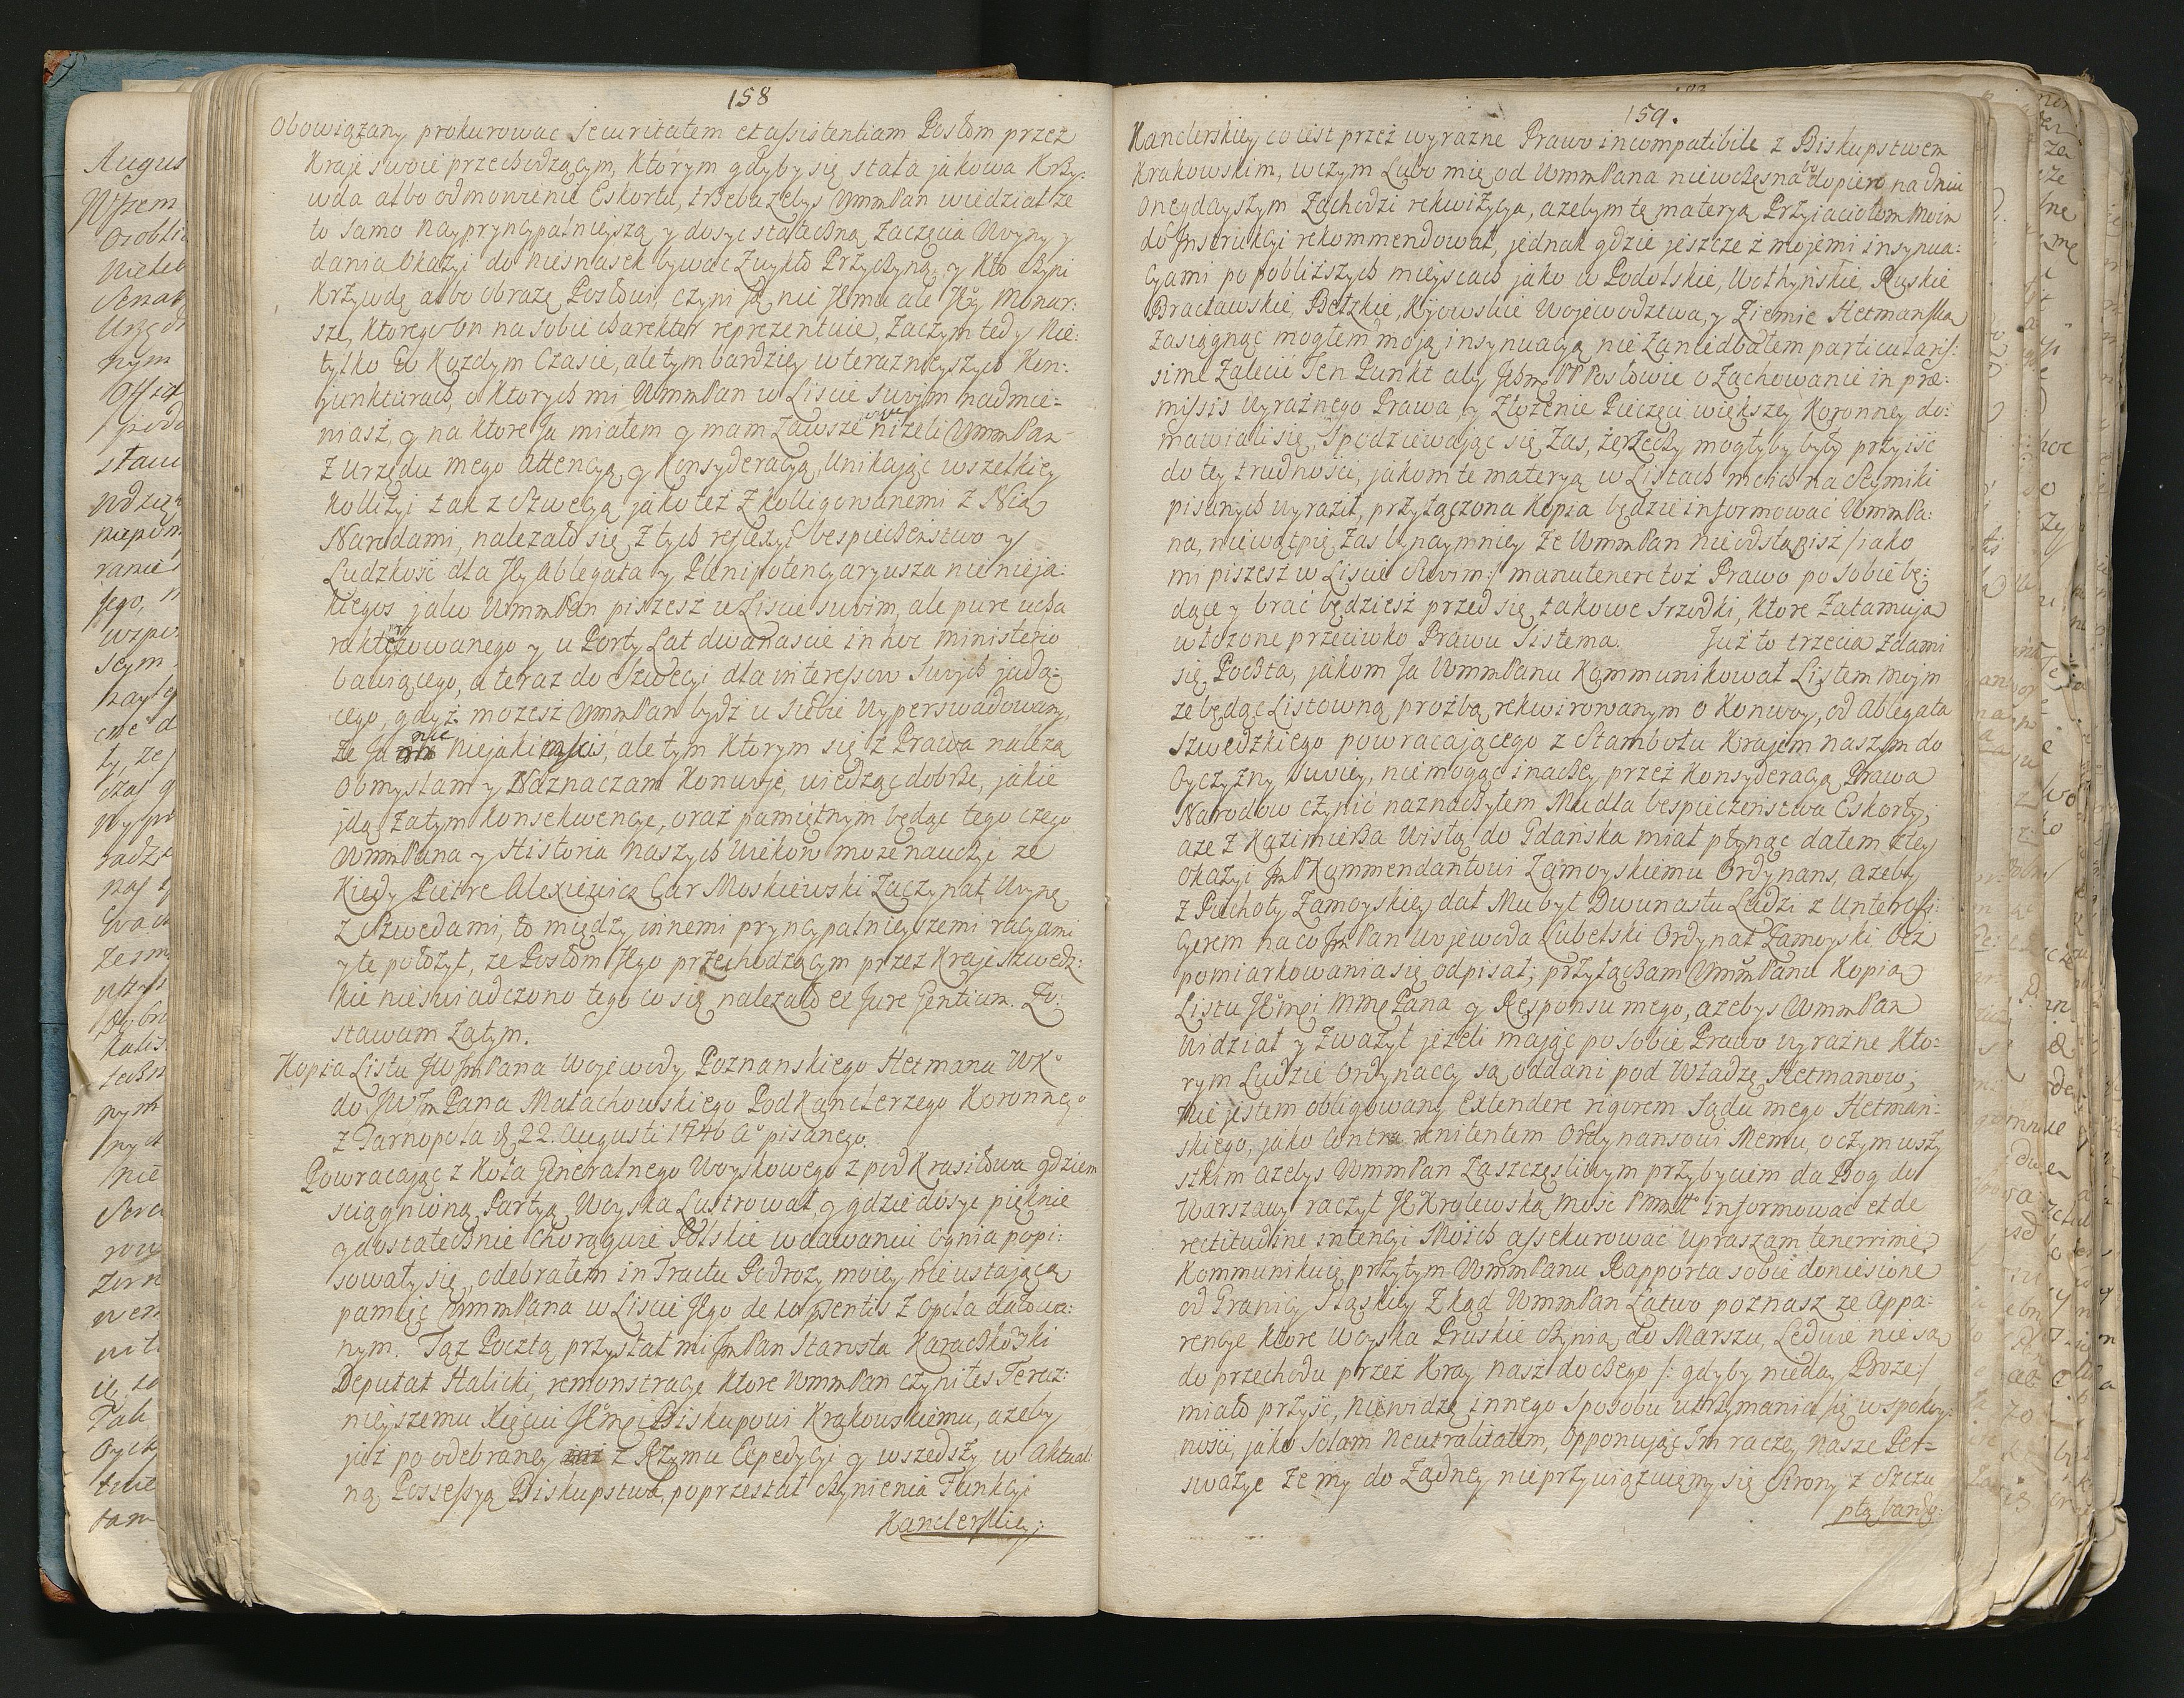 158
Obowiązany prokurować securitatem et assistentiam Posłom przez
Kraje swoie przechodzącym, Którym gdyby się stała jakowa Krzy:
wda albo odmowienie Eskorty, trzeba żebyś WmmPan wiedział że
to samo naypryncypalnieyszą y dosyć stateczną Zaczęcia Woyny y
dania Okazyi do niesnasek bywać Zwykło Przyczyną, y Kto czyni
Krzywdę albo obrazę Posłowi, czyni ią nie Jemu ale Jego Monar:
sze, Ktorego On na sobie charekter reprezentuie, Zaczym tedy Nie:
tylko w Kozdym Czasie, ale tym bardziey w teraznieyszych Kon:
junkturach, o Ktorych mi WmmPan w Liscie swoim nadmie=
niasz, y na ktore Ja miałem y mam Zawsze niżeli WmmPan
z urzędu mego attencyą y Konsyderacyą, Unikając wszelkiey
Kollizyi tak z Szwecyą jako też z Kolligowanemi z Nią
Narodami, nalezało się z tych reflexyi bespieczeństwo y
Ludzkość dla Jego Ablegata y Plenipotencyaryusza nie nieja:
kiegos jako WmmPan piszesz w Liscie swoim, ale pure ucha
rakteryzowanego y u Porty Lat dwanascie in hoc ministerio
bawiącego, a teraz do Szwecyi dla interessow Swych jadą:
cego, gdyż możesz WmmPan bydź u siebie Wyperswadowany,
że Ja nie Niejakimsis, ale tym Ktorym się z Prawa należą
Obmyslam y Naznaczam Konwoje, wiedząc dobrze, jakie
jdą zatym Konsekwencye, oraz pamiętnym będąc tego czego
WmmPana y Historia Naszych Wiekow może nauczyć że
Kiedy Pietre Alexiewicz Car Moskiewski Zaczynał Woynę
z Szwedami, to między innemi pryncypalnieyszemi racyami
y tę położył, że Posłom Jego przechodzącym przez Kraje Szwedz:
kie nieswiadczono tego co się należało ex Jure Gentium. Zo:
stawam Zatym.
Kopia Listu JWJmPana Wojewody Poznanskiego Hetmana WKo
do JWJmPana Małachowskiego PodKanclerzego Koronnego
z Tarnopola d. 22. Augusti 1746 Ao pisanego.
Powracając z Koła Generalnego Woyskowego z pod Krasiłowa gdziem
sciągnioną Partyą Woyska Lustrował, y gdzie dosyć pięknie
y dostatecznie Chorągwie Polskie w dawaniu Ognia popi:
sowały się, odebrałem in Tractu Podroży moiey nieustającą
pamięć WmmPana w Liscie Jego de currentis z Opola datowa:
nym. Tąż Pocztą przysłał mi JmPan Starosta Karaczkowski
Deputat Halicki, remonstracye Ktore WmmPan czyniłes Teraz:
nieyszemu Xięciu JEmci Biskupowi Krakowskiemu, ażeby
już po odebraney z Rzymu Expedycyi y wszedszy w Aktual
ną Possessyą Biskupstwa, poprzestał czynienia Funkcyi
Kanclerskiey;
159.
Kanclerskiey co iest przez wyrazne Prawo incompatibile z Biskupstwem
Krakowskim, w czym Lubo mię od WmmPana niewczesna bo dopiero na dniu
onegdayszym Zachodzi rekwizycya, ażebym tę materyą Przyiaciołom Moim
do Instrukcyi rekommendował, jednak gdzie jeszcze z mojemi insynua:
cyami po pobliższych miejscach jako w Podolskie, Wołhyńskie, Ruskie
Bracławskie, Bełzkie, Kijowskie Wojewodztwa, y Ziemie Hetmanska
zasiągnąć mogłem moją insynuacyą nie Zaniedbałem particularis:
sime Zalecić Ten Punkt aby Ichmć PP Posłowie o Zachowanie in præ:
missis Wyraźnego Prawa y Złożenie Pieczęci większey Koronney do:
mawiali się, Spodziewając się zas, że rzeczy mogłyby były przyiść
do tey trudności, jakom te materyą w Listach moich na Seymiki
pisanych wyraził, przyłączona Kopia będzie informować WmmPa:
na, niewątpię zas bynaymniey że WmmPan nie odstąpisz /: jako
mi piszesz w Liscie Swoim :/ manutenere toż Prawo po sobie bę:
dące y brać będziesz przed się takowe srzodki, Ktore zatamują
włożone przeciwko Prawu Sistema. Już to trzecia zdami
się Poczta, jakom Ja WmmPanu Kommunikował Listem moym
że będąc Listowną proźbą rekwirowanym o Konwoy, od Ablegata
Szwedzkiego powracającego z Stambołu Krajem naszym do
Oyczyzny Swoiey, niemogąc inaczey przez Konsyderacyą Prawa
Narodow czynić naznaczyłem Mu dla bespieczeństwa Eskortę,
a że z Kazimierza Wisłą do Gdańska miał płynąć dałem z tey
okazyi JmPKommendantowi Zamoyskiemu Ordynans, ażeby
z Piechoty Zamoyskiey dał Mu był Dwunastu Ludzi z Unteroffi:
cyerem na co JmPan Wojewoda Lubelski Ordynat Zamoyski bez
pomiarkowania się odpisał; przyłączam WmmPanu Kopią
Listu JEmci MmęPana y Responsu mego, ażebys WmmPan
Widział y zważył jeżeli mając po sobie Prawo wyraźne Kto:
rym Ludzie Ordynaccy są oddani pod Władzę Hetmanow;
nie jestem obligowany Extendere rigorem Sądu mego Hetmań:
skiego, jako contra renitentem Ordynansowi Memu, o czym wszy
stkim ażebys WmmPan Zaszczęsliwym przybyciem da Bog do
Warszawy raczył JKKrolewską Mość PMMo informować et de
rectitudine intencyi Moich assekurować Upraszam tenerrime.
Kommunikuię przytym WmmPanu Rapporta sobie doniesione
od Granicy Sląskiey Zkąd WmmPan Łatwo poznasz że Appa:
rencye Ktore Woyska Pruskie czynią do Marszu, Ledwie nie są
do przechodu przez Kray nasz do czego /: gdyby nieday Boże :/
miało przyść, niewidzę innego Sposobu utrzymania się w spokoy:
ności, jako Solam Neutralitatem, Opponując Im raczey nasze Per=
swazye że my do Żadney nieprzywiązuiemy się Strony z Szczu
płą bando: